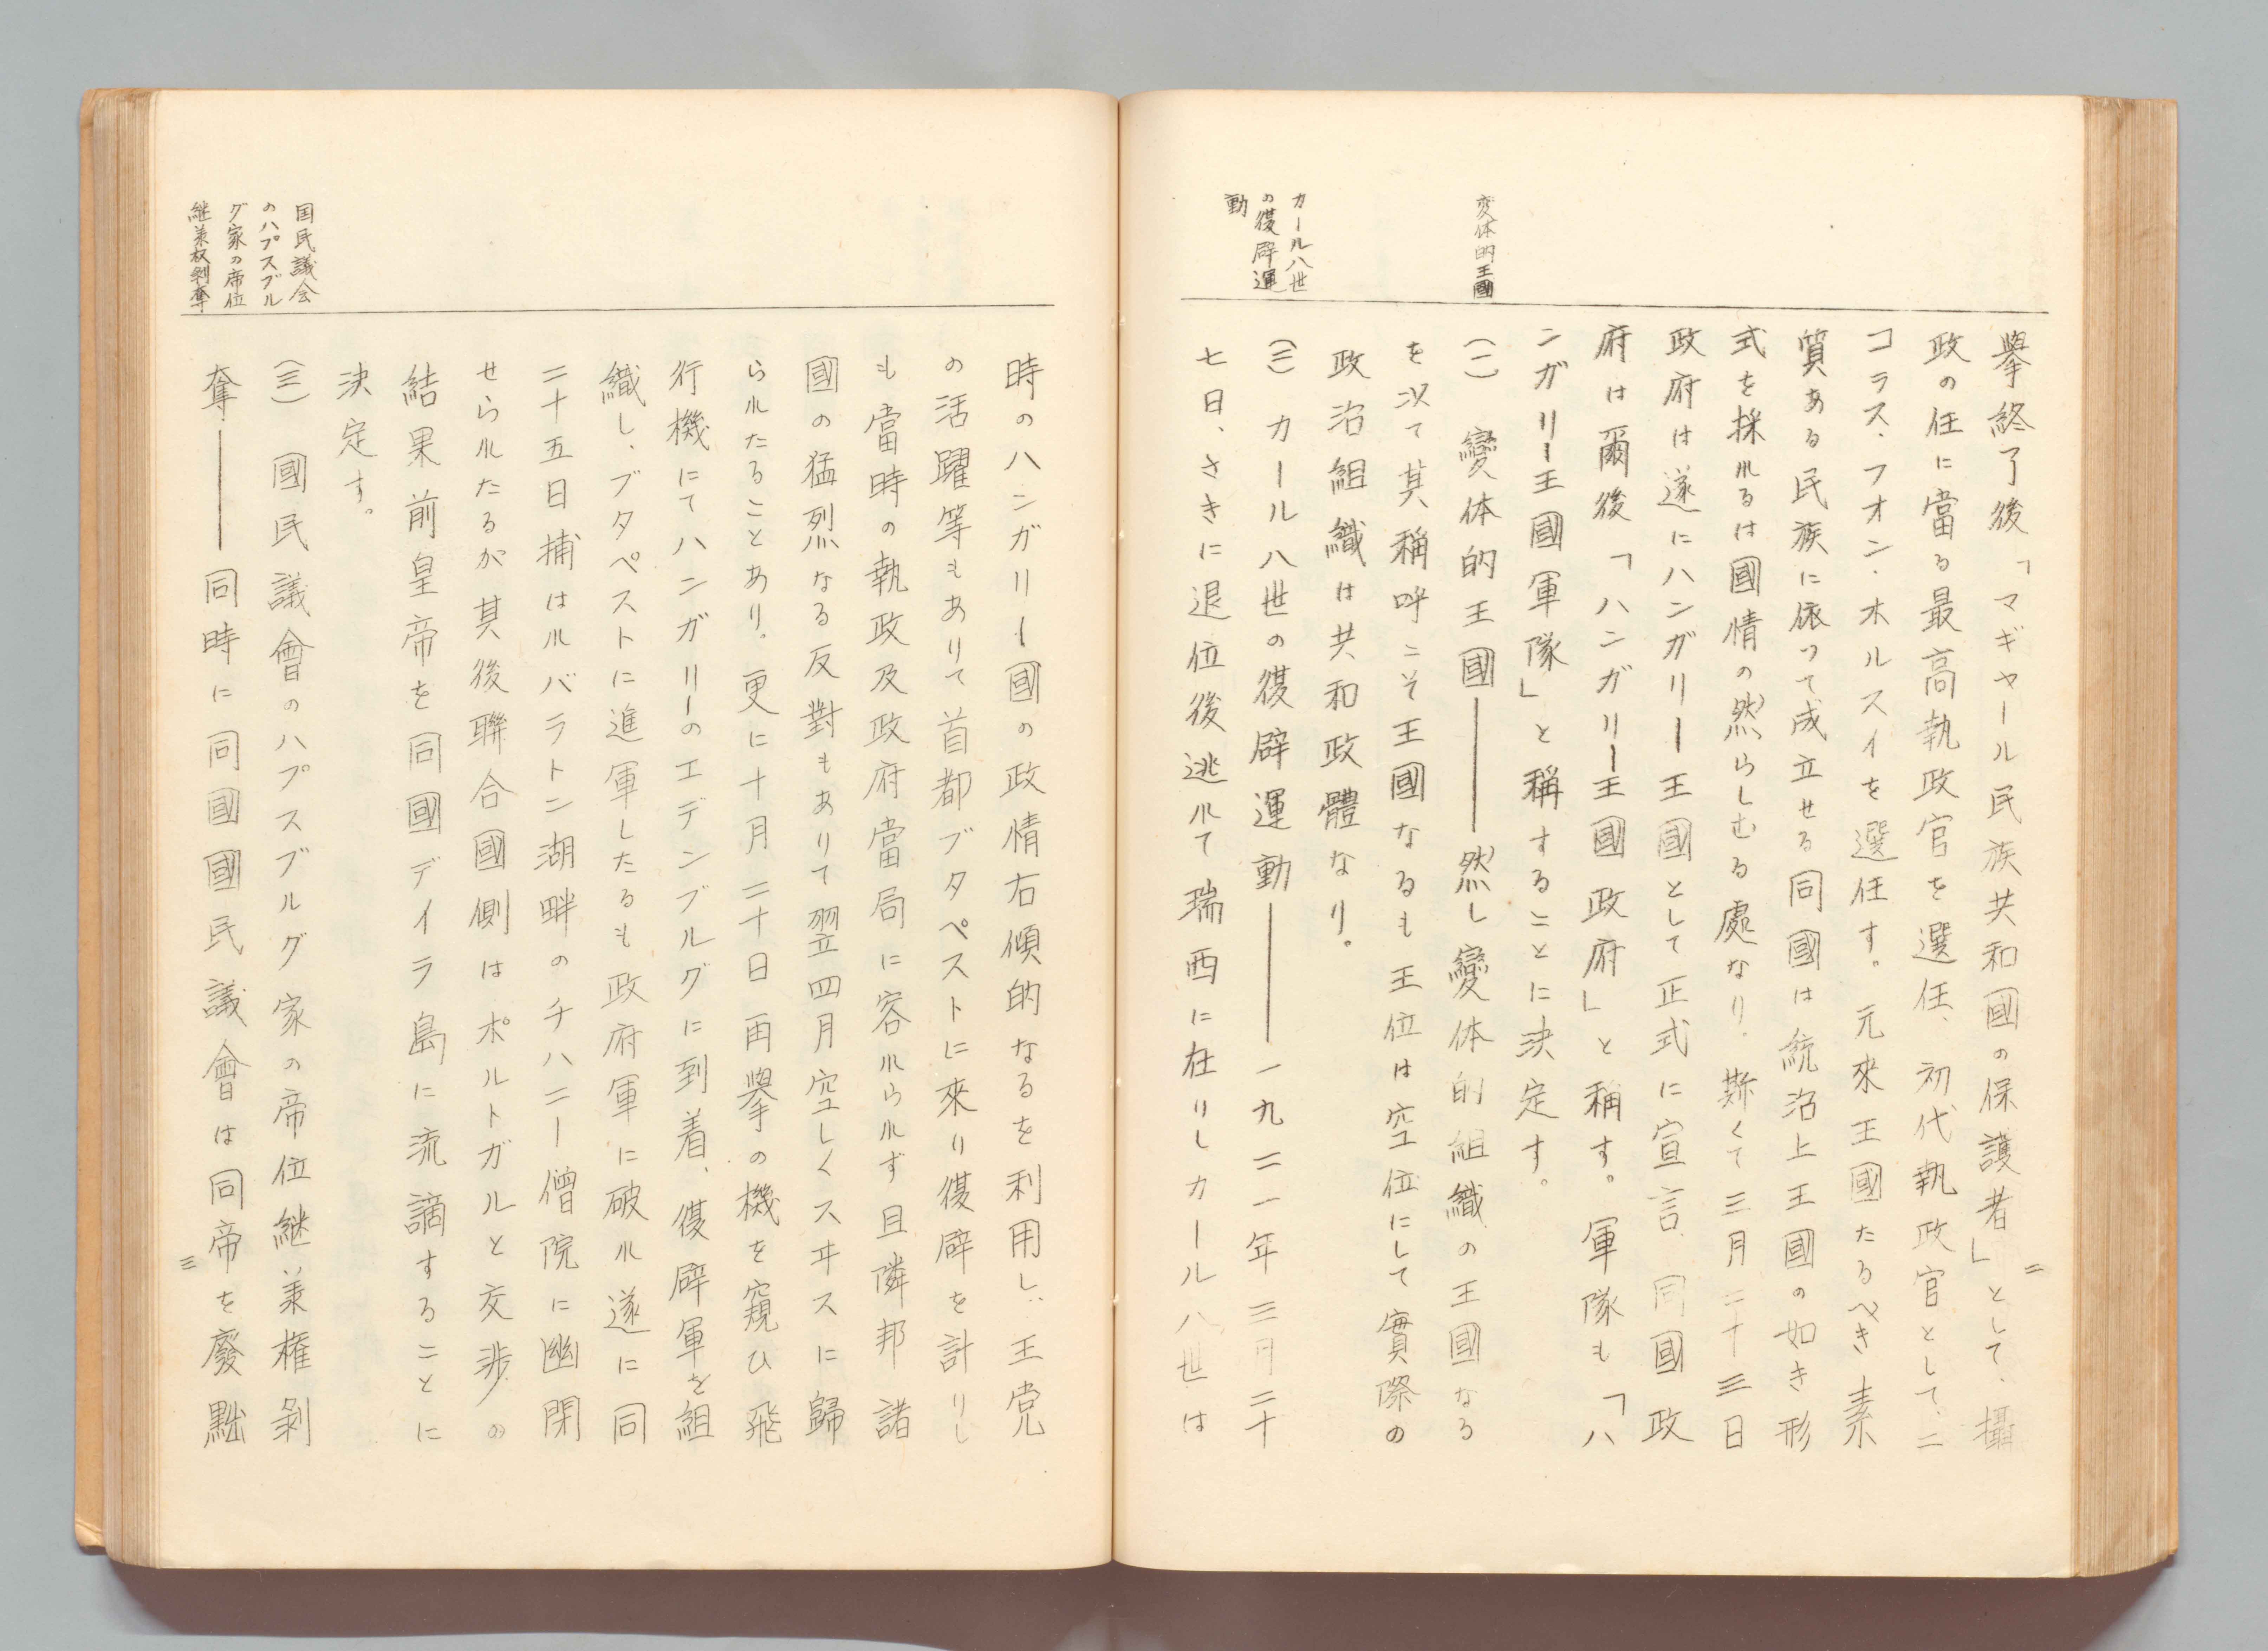 擧終了後「マギヤール民族共和國の保護者」として、攝
政の任に當る最高執政官を選任、初代執政官として、ニ
コラス・フオン・ホルスイを選任す。元來王國たるべき素
質ある民族に依つて成立せる同國は統治上王國の如き形
式を採れるは國情の然らしむる處なり。斯くて三月二十三日
政府は遂にハンガリー王國として正式に宣言、同國政
府は爾後「ハンガリー王國政府」と稱す。軍隊も「ハ
ンガリー王國軍隊」と稱することに決定す。
変体的王國
(一) 變体的王國――然し變体的組織の王國なる
を以て其稱呼こそ王國なるも王位は空位にして實際の
政治組織は共和政體なり。
カール八世
の復辟運
動
(二) カール八世の復辟運動――一九二一年三月二十
七日、さきに退位後逃れて瑞西に在りしカール八世は
二
時のハンガリー國の政情右傾的なるを利用し、王党
の活躍等もありて首都ブタペストに來り復辟を計りし
も當時の執政及政府當局に容れられず且隣邦諸
國の猛烈なる反對もありて翌四月空しくスヰスに歸
られたることあり。更に十月二十日再擧の機を窺ひ飛
行機にてハンガリーのエデンブルグに到着、復辟軍を組
織し、ブタペストに進軍したるも政府軍に破れ遂に同
二十五日捕はれバラトン湖畔のチハニー僧院に幽閉
せられたるが其後聯合國側はポルトガルと交渉の
結果前皇帝を同國デイラ島に流謫することに
決定す。
国民議会
のハプスブル
グ家の帝位
継承权剝奪
(三) 國民議會のハプスブルグ家の帝位継承權剝
奪――同時に同國國民議會は同帝を廢黜
三